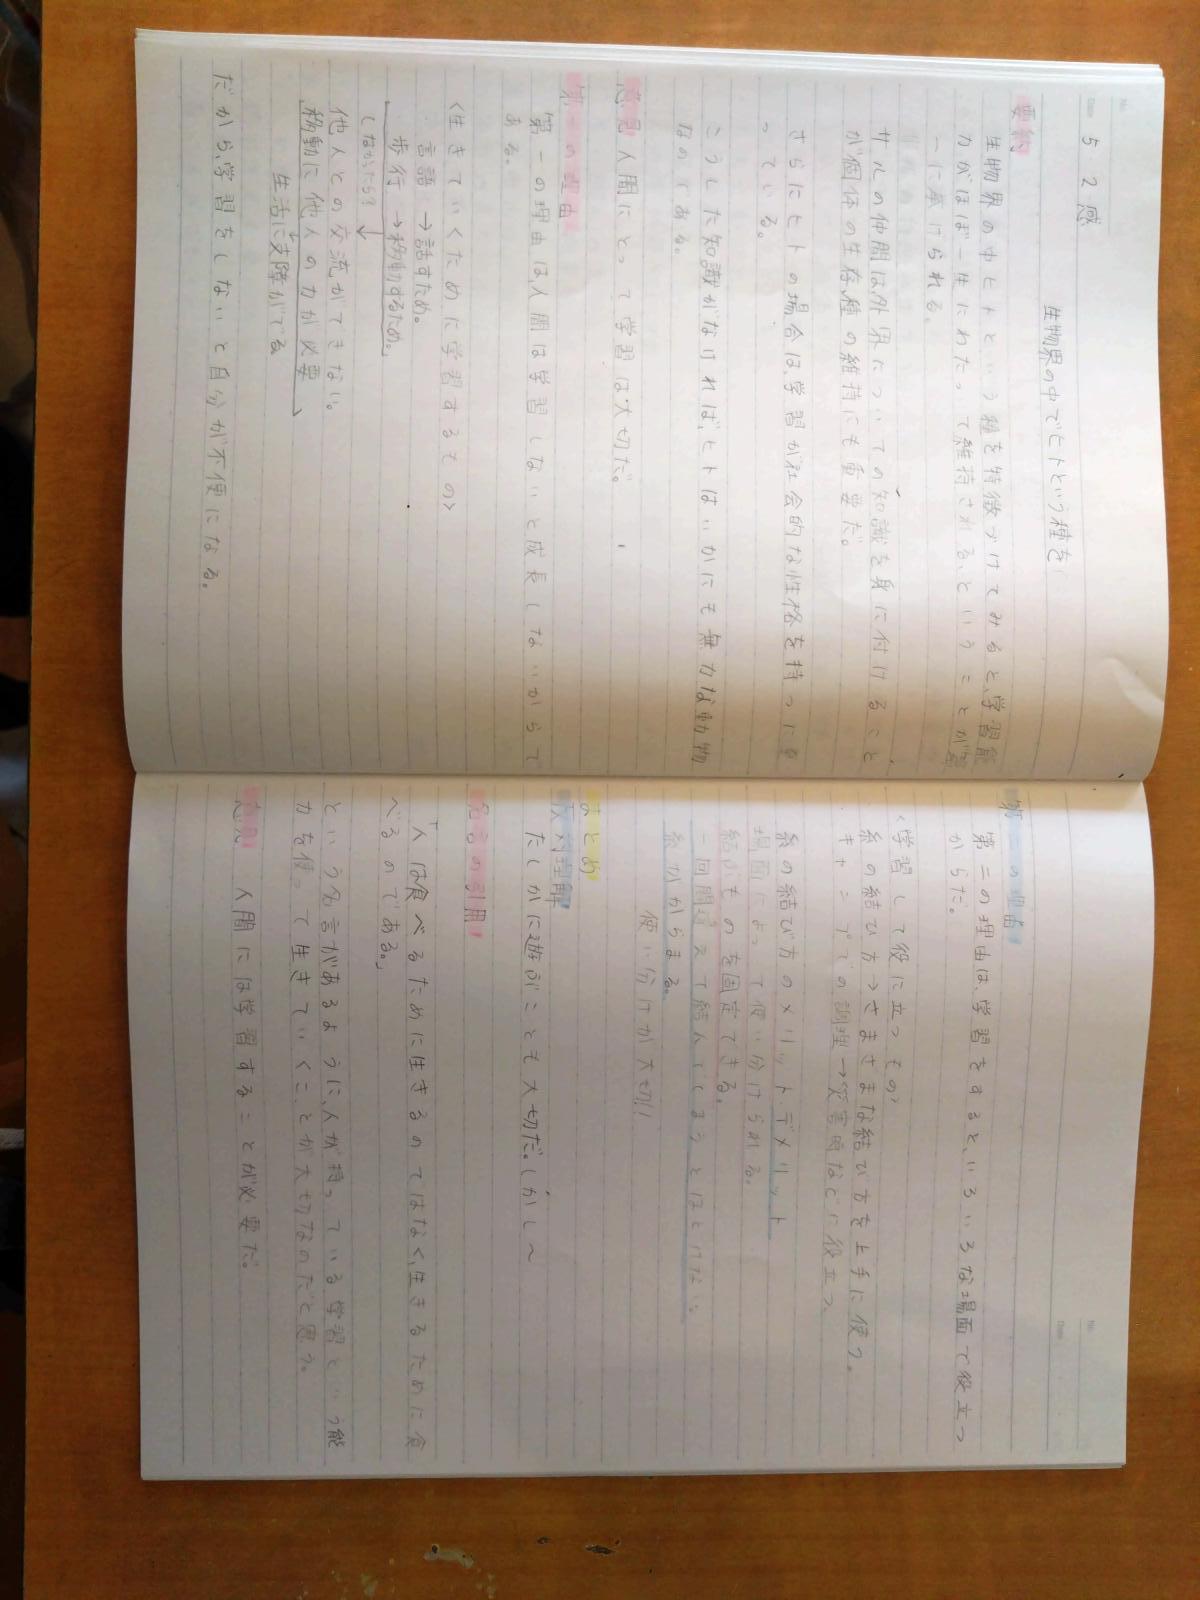 No.
Date 5 2 感
生物界の中でヒトという種を
要約
生物界の中ヒトという種を特徴づけてみると、学習能
力がほぼ一生にわたって維持される、ということが第
一に挙げられる。
サルの仲間は、外界についての知識を身に付けること
が個体の生存、種の維持にも重要だ。
さらにヒトの場合は、学習が社会的な性格を持つに至
っている。
こうした知識がなければ、ヒトはいかにも無力な動物
なのである。
意見 人間にとって学習は大切だ。
第一の理由
第一の理由は、人間は学習しないと成長しないからで
ある。
〈生きていくために学習するもの〉
言語 →話すため。
歩行 →移動するため。
しなかったら?
他人との交流ができない。
移動に他人の力が必要
生活に支障がでる
だから、学習をしないと自分が不便になる。
No.
Date
第二の理由
第二の理由は、学習をすると、いろいろな場面で役立つ
からだ。
〈学習して役に立つもの〉
糸の結び方→さまざまな結び方を上手に使う。
キャンプでの調理→災害時などに役立つ。
糸の結び方のメリットデメリット
場面によって使い分けられる。
結ぶものを固定できる。
一回間違えて結んでしまうとほどけない。
糸がからまる。
使い分けが大切!!
まとめ
反対理解
たしかに遊ぶことも大切だ。しかし〜
名言の引用
「人は食べるために生きるのではなく、生きるために食
べるのである。」
という名言があるように、人が持っている学習という能
力を使って生きていくことが大切なのだと思う。
意見 人間には学習することが必要だ。